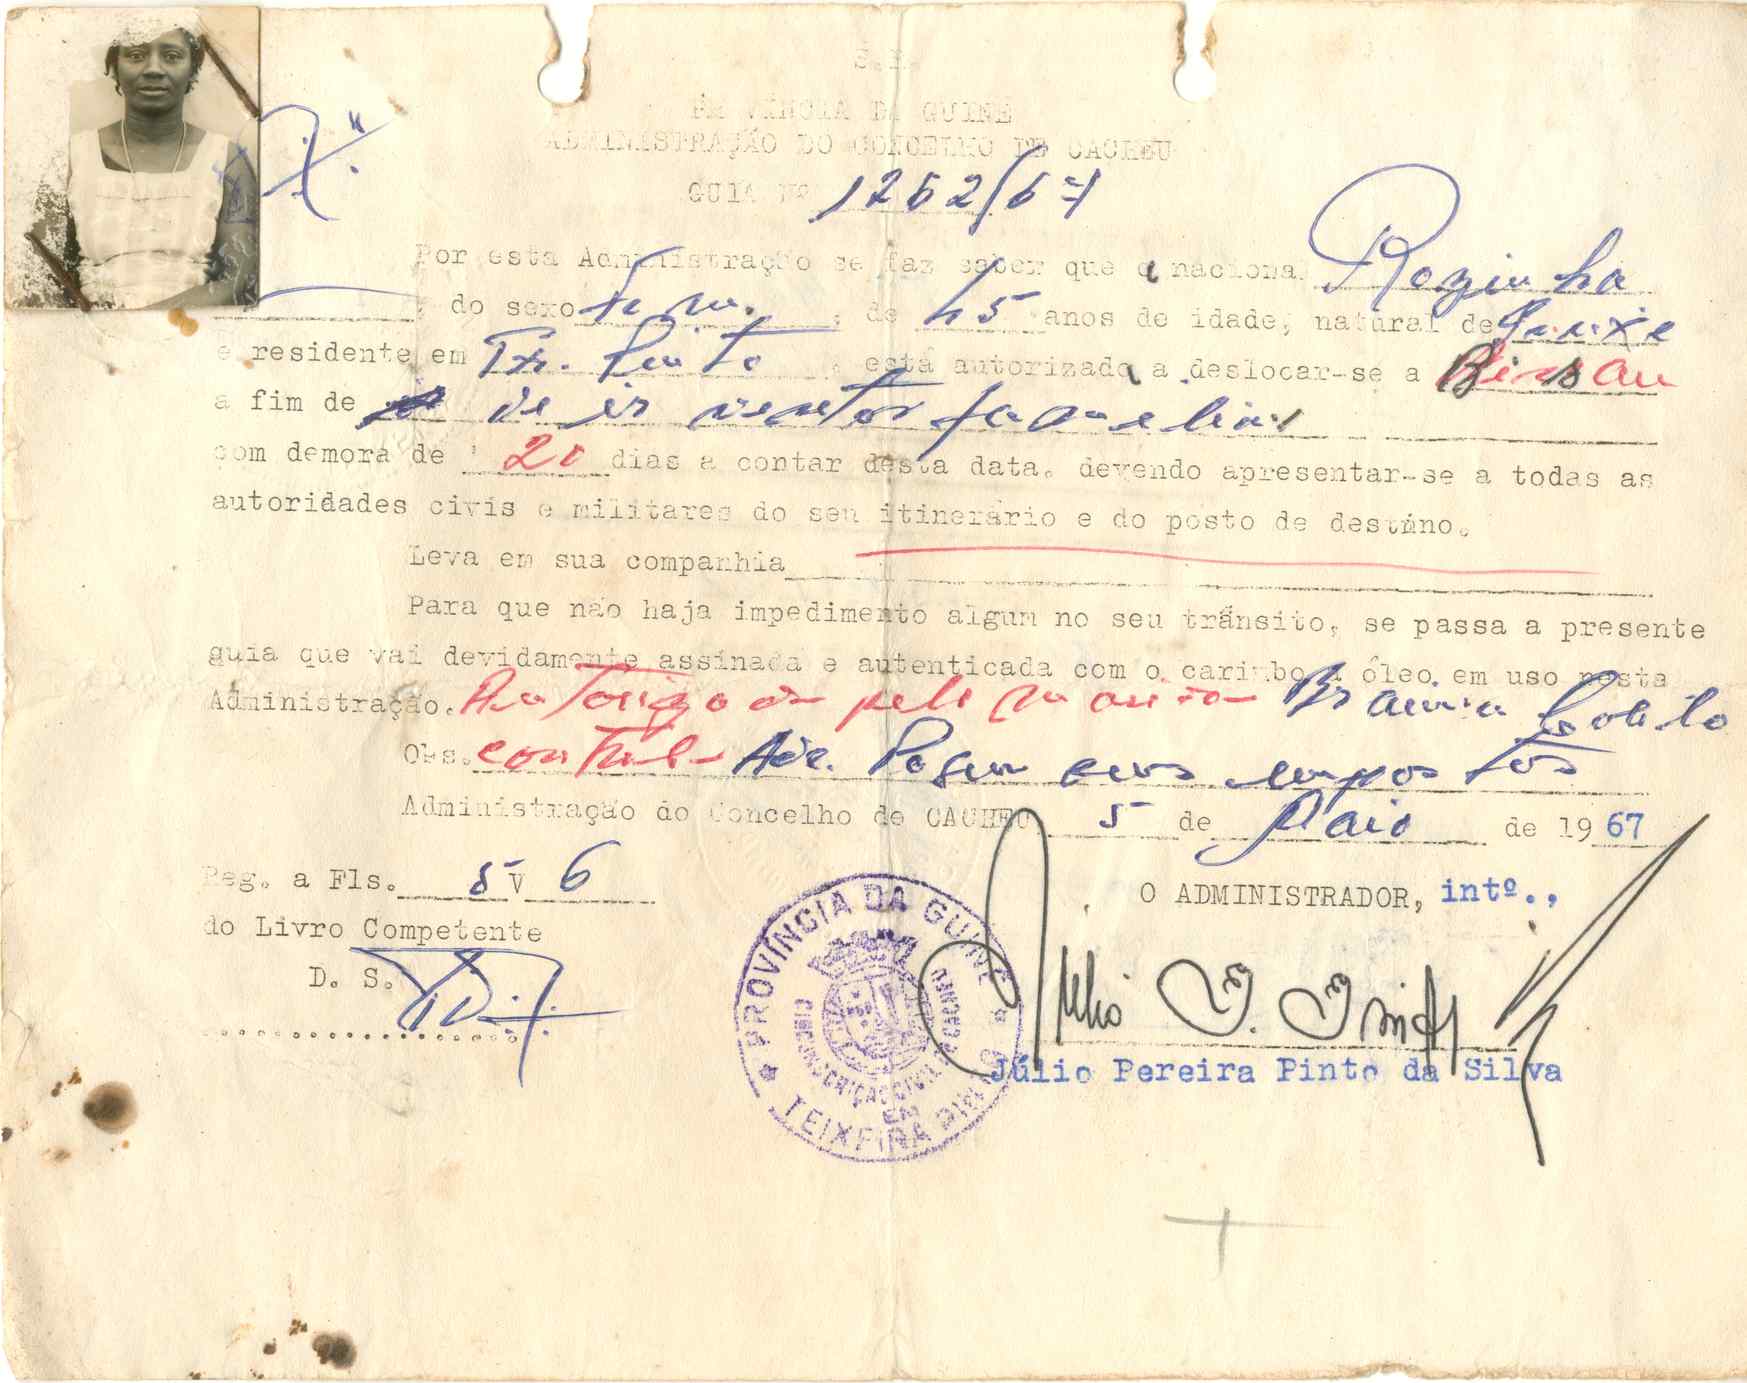 S.R.
PROVINCIA DA GUINE
ADMINISTRAÇÃO DO CONCELHO DE CACHEU
GUIA Nº 1262/67
Por esta Administração se faz saber que a nacional Rozinha
, do sexo fem. , de 45 anos de idade, natural de
e residente em Tx. Pinto , está autorizada a deslocar-se a Bissau
a fim de de ir
com demora de 20 dias a contar desta data, devendo apresentar-se a todas as
autoridades civis e militares do seu itinerário e do posto de destino.
Leva em sua companhia
Para que não haja impedimento algum no seu trânsito, se passa a presente
guia que vai devidamente assinada e autenticada com o carimbo a óleo em uso nesta
Administração. Autorizada pelo marido
Obs. Pagou seus impostos
Administração do Concelho de CACHEU 5 de Maio de 1967
Reg. a Fls. 5 V 6
do Livro Competente
D. S.
O ADMINISTRADOR, intº.,
Júlio Pereira Pinto da Silva
PROVÍNCIA DA GUINÉ
CIRCUNSCRIÇÃO CIVIL
CACHEU
EM
TEIXEIRA PINTO